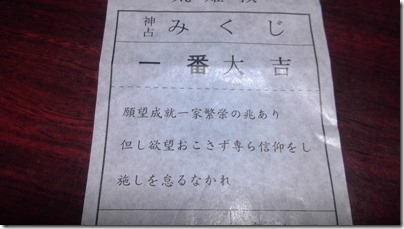 神占 みくじ
一番大吉
願望成就一家繁栄の兆あり
但し欲望おこさず専ら信仰をし
施しを怠るなかれ